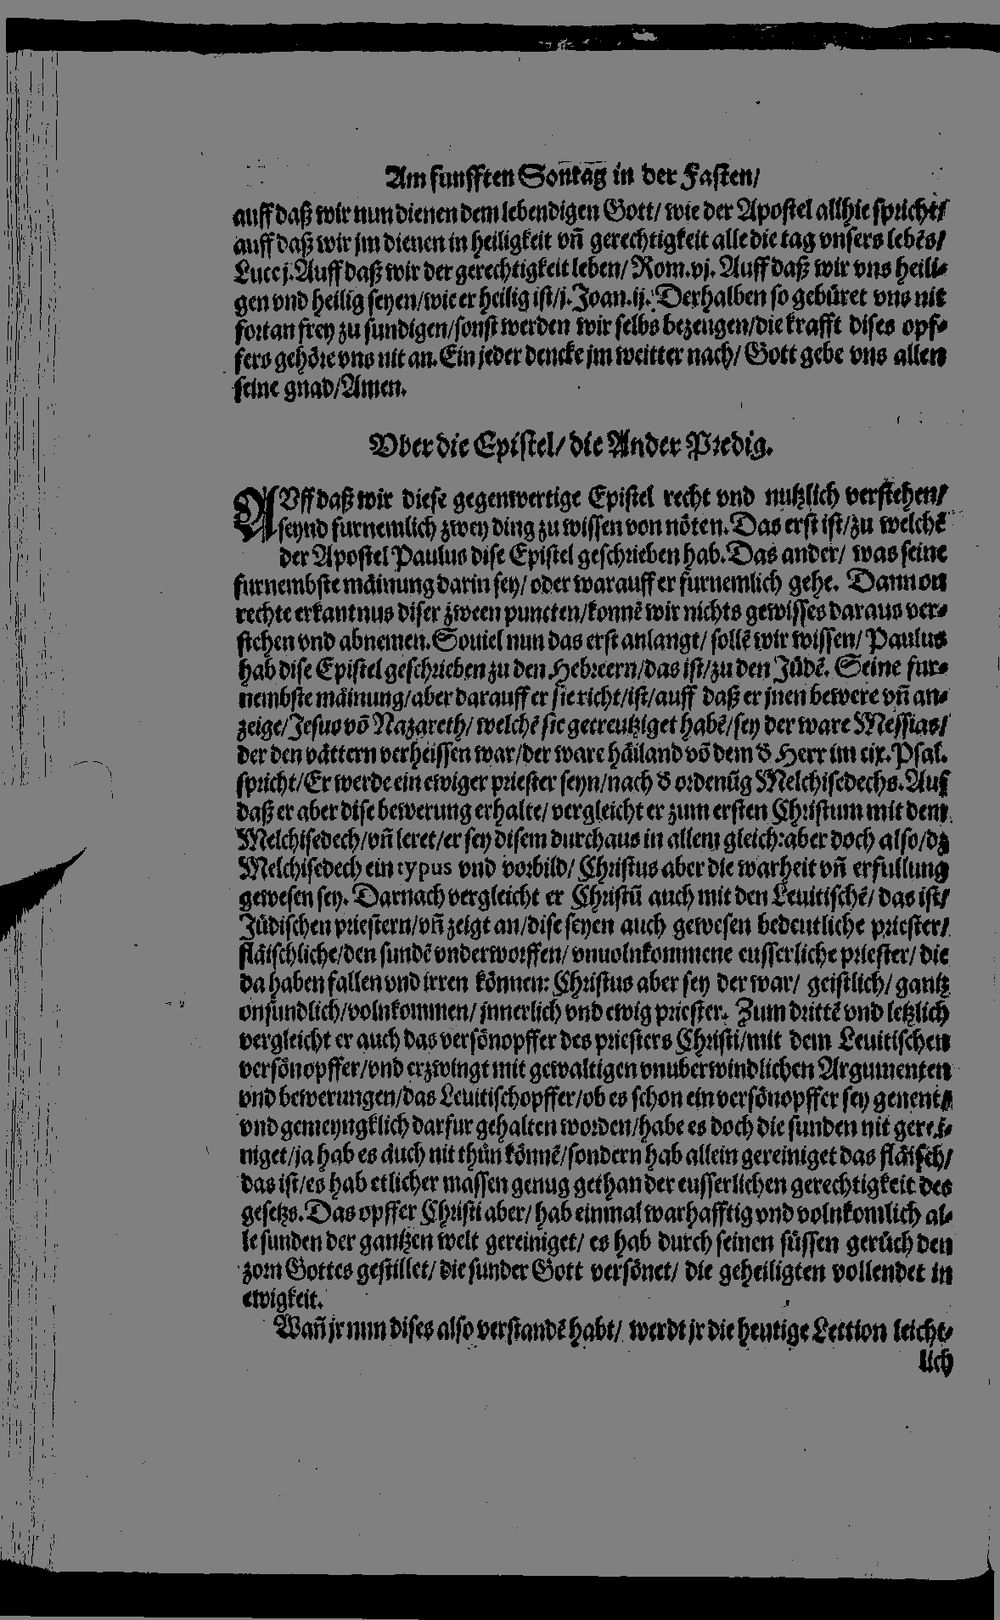 Am funfften Sontag in der Fasten/
auff daß wir nun dienen dem lebendigen Gott/ wie der Apostel allhie spricht/
auff daß wir jm dienen in heiligkeit vñ gerechtigkeit alle die tag vnsers lebēs/
Luce j. Auff daß wir der gerechtigkeit leben/ Rom. vj. Auff daß wir vns heili-
gen vnd heilig seyen/ wie er heilig ist/ j. Joan. ij. Derhalben so gebüret vns nit
fortan frey zu sundigen/ sonst werden wir selbs bezeugen/ die krafft dises opf-
fers gehöre vns nit an. Ein jeder dencke jm weitter nach/ Gott gebe vns allen
seine gnad/ Amen.
Vber die Epistel/ die Ander Predig.
AVff daß wir diese gegenwertige Epistel recht vnd nutzlich verstehen/
seynd furnemlich zwey ding zu wissen von nöten. Das erst ist/ zu welchē
der Apostel Paulus dise Epistel geschrieben hab. Das ander/ was seine
furnembste mäinung darin sey/ oder warauff er furnemlich gehe. Dann on
rechte erkantnus diser zween puncten/ konnē wir nichts gewisses daraus ver-
stehen vnd abnemen. Souiel nun das erst anlangt/ sollē wir wissen/ Paulus
hab dise Epistel geschrieben zu den Hebreern/ das ist/ zu den Jüdē. Seine fur-
nembste mäinung/ aber darauff er sie richt/ ist/ auff daß er jnen bewere vñ an-
zeige/ Jesus vō Nazareth/ welchē sie gecreutziget habē/ sey der ware Messias/
der den vättern verheissen war/ der ware häiland vō dem d Herr im cix. Psal.
spricht/ Er werde ein ewiger priester seyn/ nach d ordenūg Melchisedechs. Auf
daß er aber dise bewerung erhalte/ vergleicht er zum ersten Christum mit dem
Melchisedech/ vñ leret/ er sey disem durchaus in allem gleich: aber doch also/ dz
Melchisedech ein typus vnd vorbild/ Christus aber die warheit vñ erfullung
gewesen sey. Darnach vergleicht er Christū auch mit den Leuitischē/ das ist/
Jüdischen priestern/ vñ zeigt an/ dise seyen auch gewesen bedeutliche priester/
fläischliche/ den sundē vnderworffen/ vnuolnkommene eusserliche priester/ die
da haben fallen vnd irren können: Christus aber sey der war/ geistlich/ gantz
onsundlich/ volnkommen/ jnnerlich vnd ewig priester. Zum drittē vnd letzlich
vergleicht er auch das versönopffer des priesters Christi/ mit dem Leuitischen
versönopffer/ vnd erzwingt mit gewaltigen vnuberwindlichen Argumenten
vnd bewerungen/ das Leuitisch opffer/ ob es schon ein versönopffer sey genent/
vnd gemeyngklich darfur gehalten worden/ habe es doch die sunden nit gerei-
niget/ ja hab es auch nit thün könnē/ sondern hab allein gereiniget das fläisch/
das ist/ es hab etlicher massen genug gethan der eusserlichen gerechtigkeit des
gesetzs. Das opffer Christi aber/ hab einmal warhafftig vnd volnkomlich al-
le sunden der gantzen welt gereiniget/ es hab durch seinen süssen gerüch den
zorn Gottes gestillet/ die sunder Gott versönet/ die geheiligten vollendet in
ewigkeit.
Wañ jr nun dises also verstandē habt/ werdt jr die heutige Lection leicht-
lich